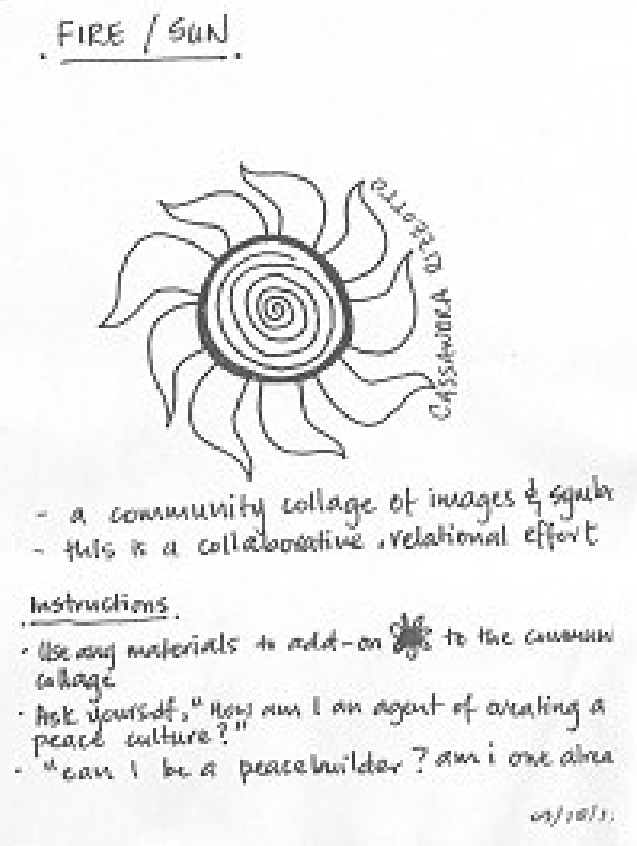 FIRE / SUN
CASSANDRA
- a community collage of images &
- this is a collaborative, relational effort
Instructions
· Use any materials to add-on to the commun
collage
· Ask yourself, "How am I an agent of creating a
peace culture?"
- "can I be a peacebuilder? am i one alrea